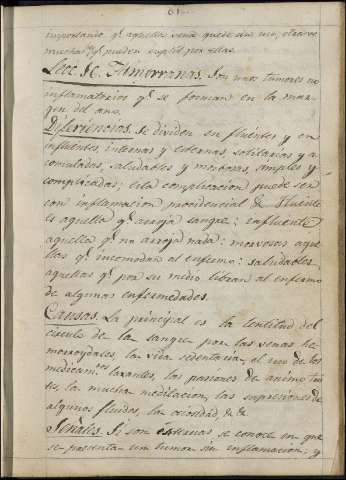 61..
importando qᵉ aquella vena quede sin uso, otras
muchas qᵉ pueden suplir por ellas.
Lecc. 16. Almorranas. Son unos tumores no
inflamatorios qᵉ se forman en la mar-
gen del ano.
Diferiencias. Se dividen en fluentes y en
influentes, internas y esternas, solitarias y a-
comuladas, saludables y morbosas, simples y
complicadas; esta complicacion puede ser
con inflamacion procidencial &. Fluente
es aquella qᵉ arroja sangre: influente
aquella qᵉ no arroja nada: morvosas aque-
llas qᵉ incomodan al enfermo: saludables
aquellas qᵉ por su medio libran al enfermo
de algunas enfermedades.
Causas. La principal es la lentitud del
circulo de la sangre por las venas he-
morroydales, la vida sedentaria, el uso de los
medicamᵗᵒˢ laxantes, las pasiones de animo tris-
te, la mucha meditacion, las supresiones de
algunos fluidos, la ociosidad, & &
Señales. Si son esternas, se conoce en que
se presenta un tumor sin inflamacion, y